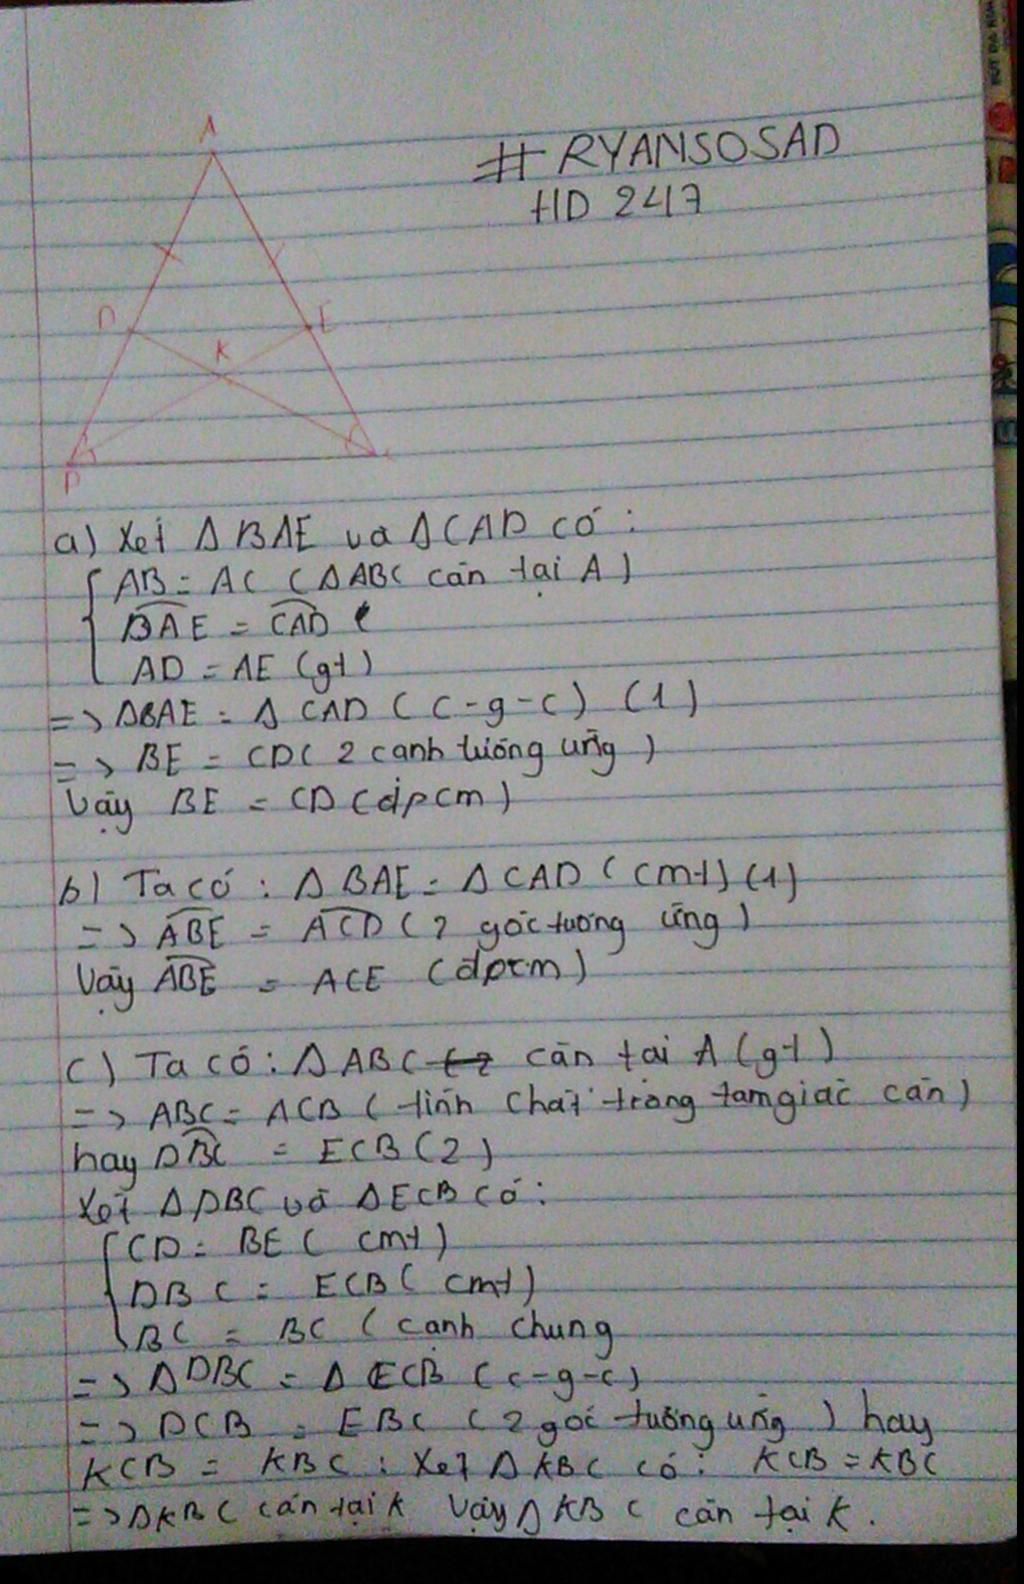 # RYANSOSAD
HD 247
A
D
E
K
B
a) Xét Δ BAE và Δ CAD có :
AB = AC (ΔABC cân tại A)
BAE = CAD
AD = AE (gt)
=> ΔBAE = Δ CAD (c-g-c) (1)
=> BE = CD( 2 cạnh tương ứng )
Vậy BE = CD (đpcm)
b) Ta có : Δ BAE = Δ CAD (cmt) (1)
=> ABE = ACD (2 góc tương ứng )
Vậy ABE = ACE (đpcm)
c) Ta có : Δ ABC cân tại A (gt)
=> ABC = ACB ( tính chất trong tam giác cân)
hay DBC = ECB (2)
Xét Δ DBC và Δ ECB có :
CD = BE ( cmt)
DBC = ECB ( cmt)
BC = BC ( cạnh chung
=> Δ DBC = Δ ECB (c-g-c)
=> DCB = EBC ( 2 góc tương ứng ) hay
KCB = KBC : Xét Δ KBC có : KCB = KBC
=> Δ KBC cân tại K Vậy Δ KBC cân tại K.